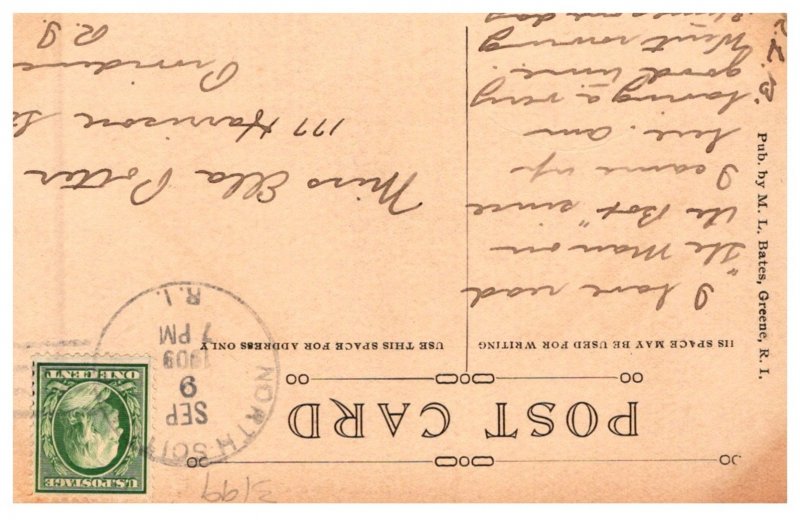 POST CARD
THIS SPACE MAY BE USED FOR WRITING
USE THIS SPACE FOR ADDRESS ONLY
Pub. by M. L. Bates, Greene, R. I.
I have read
"The Man on
the Box" since
I came up
here. am
having a very
good time.
Went rowing
NORTH SCIT
SEP
9
1909
7 PM
R.I.
U.S. POSTAGE
ONE CENT
Miss Ella Potter
177 Harrison
Providence
R.I.
3199